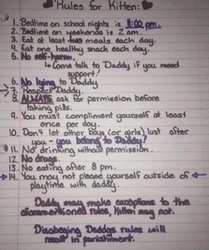 Rules for Kitten:
1. Bedtime on school nights is 11:00 pm.
2. Bedtime on weekends is 2 am.
3. Eat at least two meals each day.
4. Eat one healthy snack each day.
5. No self-harm.
↳ Come talk to Daddy if you need
support!
6. No lying to Daddy
7. Respect Daddy.
8. ALWAYS ask for permission before
taking pills.
9. You must compliment yourself at least
once per day.
10. Don't let other boys (or girls) lust after
you - you belong to Daddy!
11. No drinking without permission.
12. No drugs.
13. No eating after 8 pm.
14. You may not please yourself outside of
playtime with daddy.
Daddy may make exceptions to the
aforementioned rules, kitten may not.
Disobeying Daddys rules will
result in punishment.